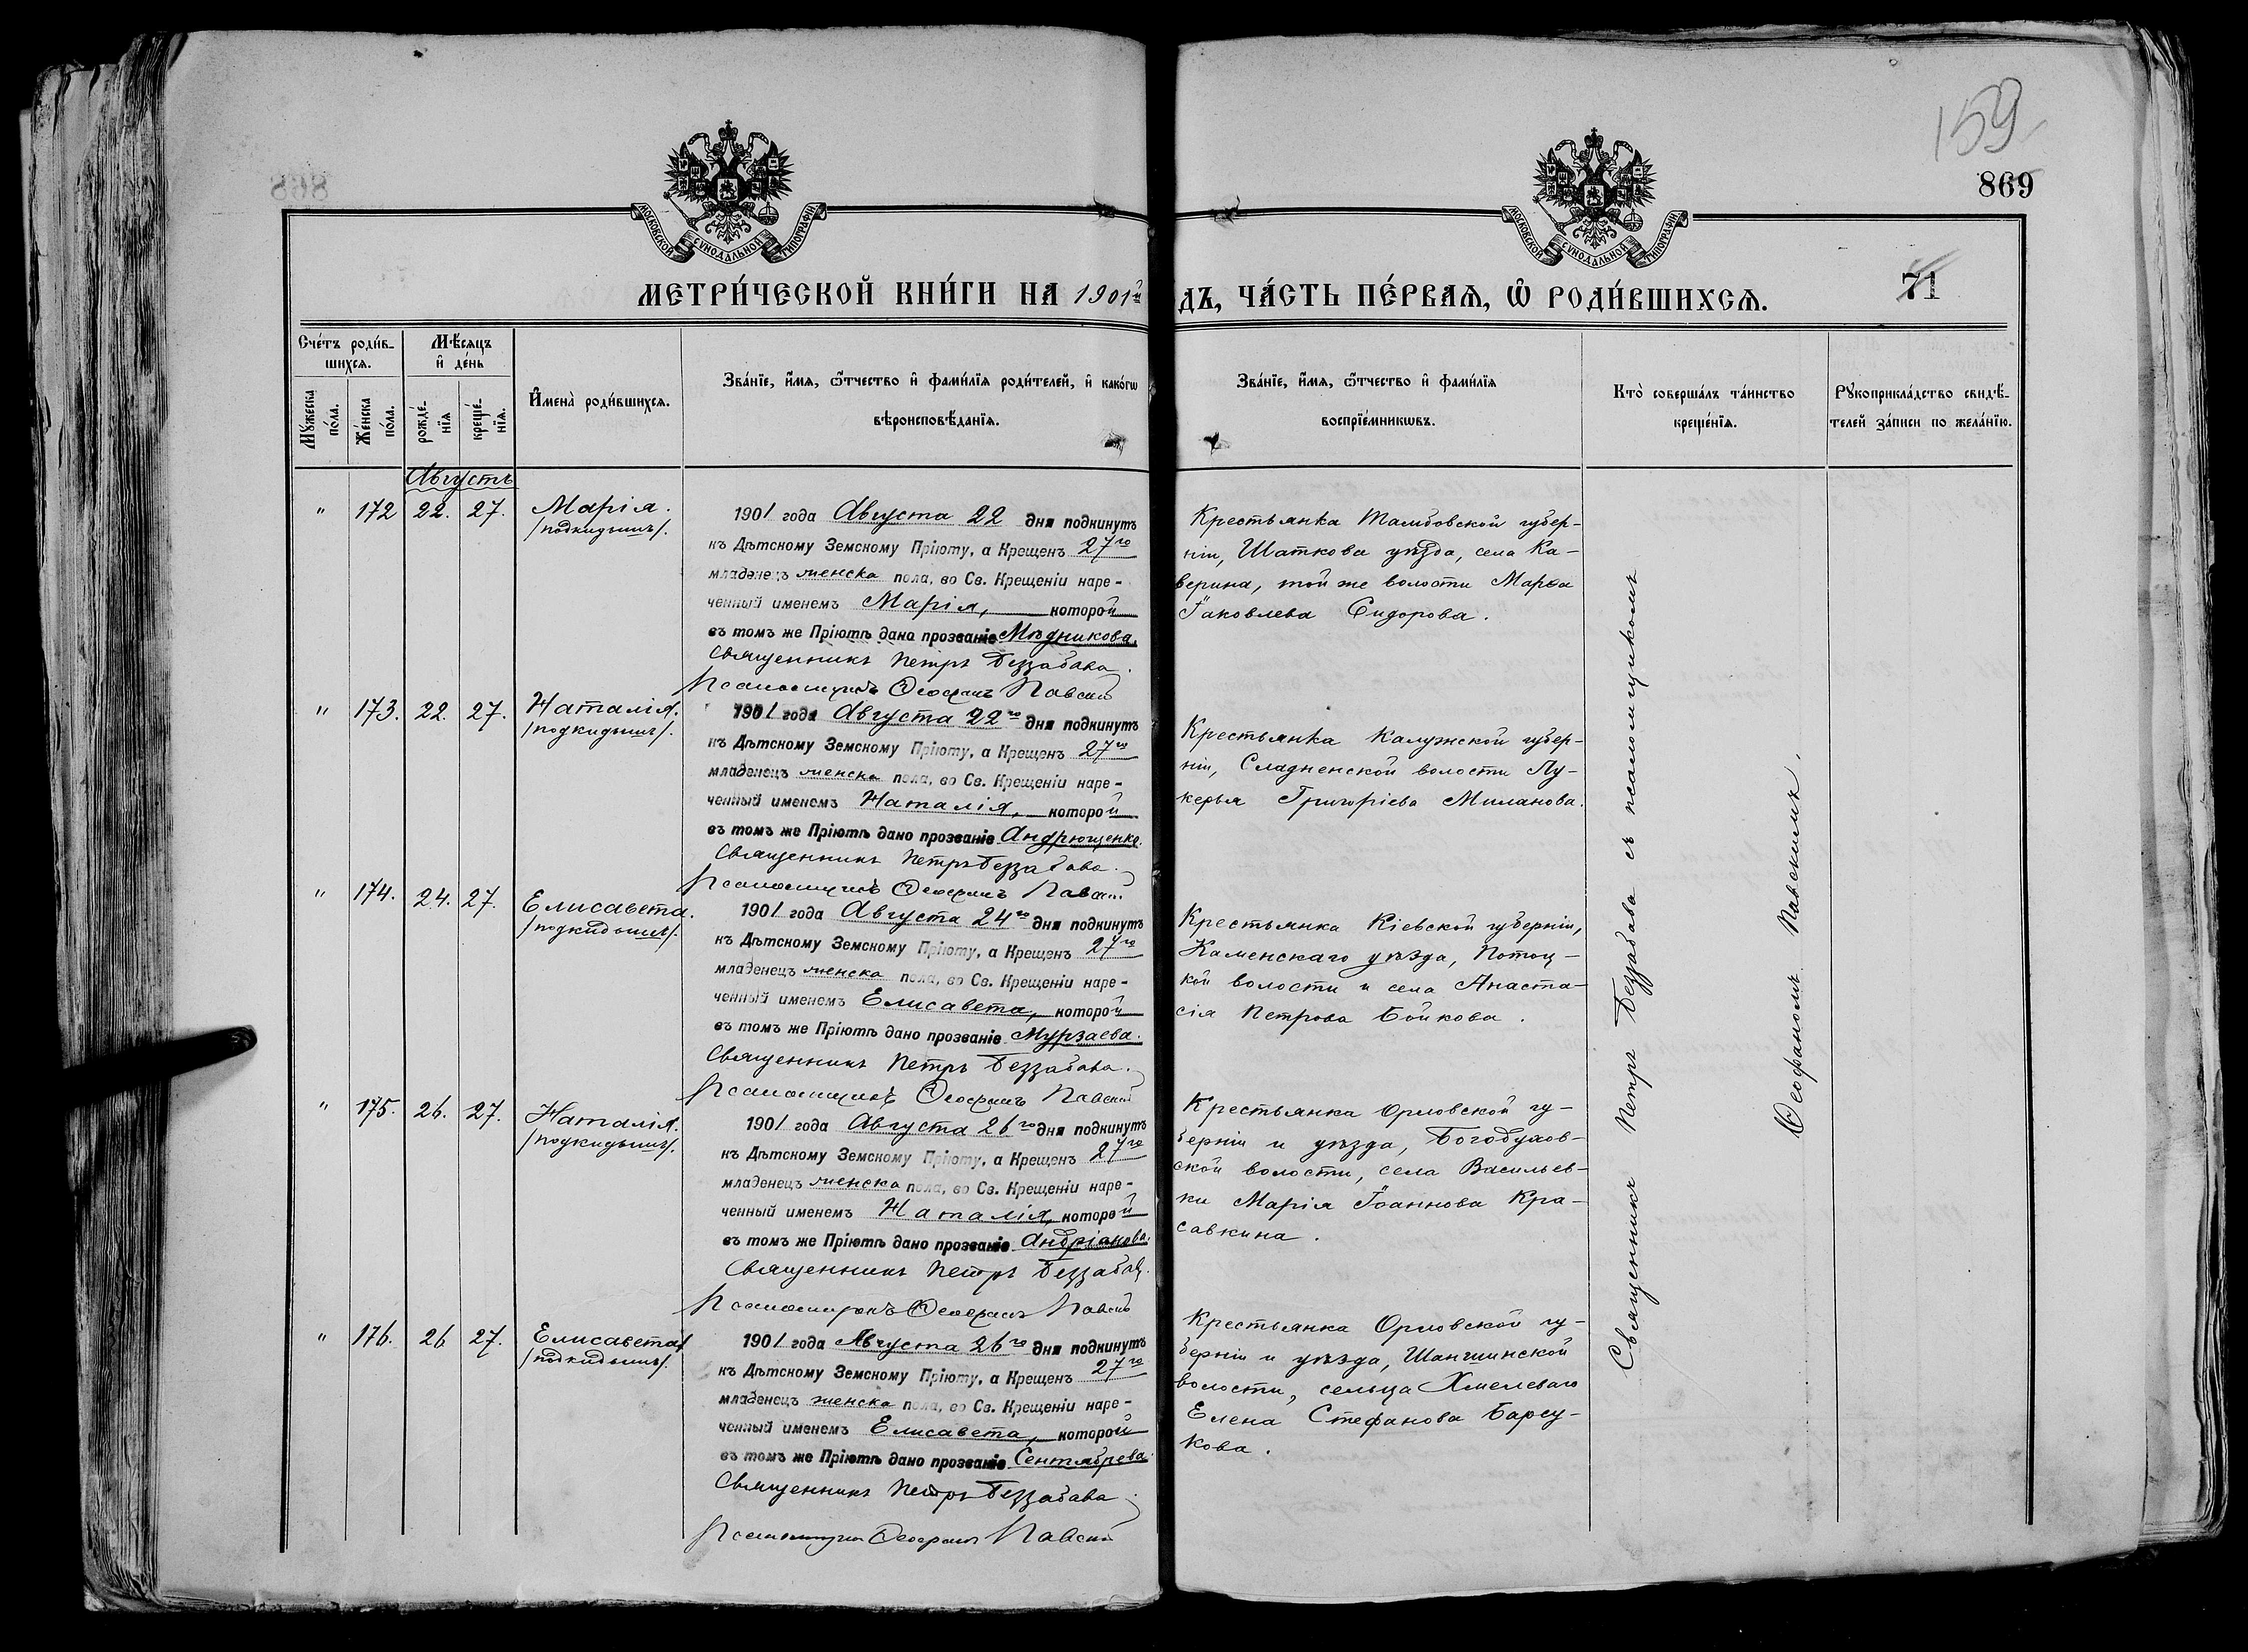 159
869
868
МОСКОВСКОЙ СУНОДАЛЬНОЙ ТИПОГРАФІИ
МОСКОВСКОЙ СУНОДАЛЬНОЙ ТИПОГРАФІИ
71
МЕТРИ́ЧЕСКОЙ КНИ́ГИ НА 1901й
ДЪ, ЧА́СТЬ ПЕ́РВАѦ, Ѡ҆ РОДИ́ВШИХСѦ.
Сче́тъ роди́в-
шихсѧ.
Мꙋ́жеска по́ла.
Же́нска по́ла.
Мѣ́сѧцъ
и҆ де́нь
рожде́-нїѧ
креще́-нїѧ.
И҆мена̀ роди́вшихсѧ.
Зва́нїе, и҆́мѧ, ѻ҆́тчество и҆ фами́лїѧ роди́телей, и҆ како́гѡ
вѣроисповѣ́данїѧ.
Зва́нїе, и҆́мѧ, ѻ҆́тчество и҆ фами́лїѧ
воспрїе́мникѡвъ.
Кто̀ соверша́лъ та́инство
креще́нїѧ.
Рꙋкоприкла́дство свидѣ́-
телей за́писи по жела́нїю.
Августъ
" 172 22. 27. Марія.
/подкидышъ/.
1901 года Августа 22 дня подкинутъ
къ Дѣтскому Земскому Пріюту, а Крещенъ 27го
младенецъ женска пола, во Св. Крещеніи наре-
ченный именемъ Марія, которой
въ томъ же Пріютѣ дано прозваніе Мѣдникова.
Священникъ Петръ Беззабава.
Псаломщикъ Ѳеофанъ Павскій
Крестьянка Тамбовской губер-
ніи, Шаткова уѣзда, села Ка-
верина, той же волости Марѳа
Іаковлева Сидорова.
" 173. 22. 27. Наталія.
/подкидышъ/.
1901 года Августа 22го дня подкинутъ
къ Дѣтскому Земскому Пріюту, а Крещенъ 27го
младенецъ женска пола, во Св. Крещеніи наре-
ченный именемъ Наталія, которой
въ томъ же Пріютѣ дано прозваніе Андрющенко.
Священникъ Петръ Беззабава.
Псаломщикъ Ѳеофанъ Павскій
Крестьянка Калужской губер-
ніи, Сладненской волости Лу-
керья Григоріева Миланова.
" 174. 24. 27. Елисавета.
/подкидышъ/.
1901 года Августа 24го дня подкинутъ
къ Дѣтскому Земскому Пріюту, а Крещенъ 27го
младенецъ женска пола, во Св. Крещеніи наре-
ченный именемъ Елисавета, которой
въ томъ же Пріютѣ дано прозваніе Мурзаева.
Священникъ Петръ Беззабава.
Псаломщикъ Ѳеофанъ Павскій
Крестьянка Кіевской губерніи,
Каменскаго уѣзда, Потоц-
кой волости и села Анаста-
сія Петрова Бойкова.
" 175. 26. 27. Наталія.
/подкидышъ/.
1901 года Августа 26го дня подкинутъ
къ Дѣтскому Земскому Пріюту, а Крещенъ 27го
младенецъ женска пола, во Св. Крещеніи наре-
ченный именемъ Наталія, которой
въ томъ же Пріютѣ дано прозваніе Андріанова.
Священникъ Петръ Беззабав.
Псаломщикъ Ѳеофанъ Павскій
Крестьянка Орловской гу-
берніи и уѣзда, Богодухов-
ской волости, села Васильев-
ки Марія Іоаннова Кра-
савкина.
" 176. 26 27. Елисавета
/подкидышъ/.
1901 года Августа 26го дня подкинутъ
къ Дѣтскому Земскому Пріюту, а Крещенъ 27го
младенецъ женска пола, во Св. Крещеніи наре-
ченный именемъ Елисавета, которой
въ томъ же Пріютѣ дано прозваніе Сентябрева.
Священникъ Петръ Беззабава.
Псаломщикъ Ѳеофанъ Павскій
Крестьянка Орловской гу-
берніи и уѣзда, Шаншинской
волости, сельца Хмелеваго
Елена Стефанова Барсу-
кова.
Священникъ Петръ Беззабава съ псаломщикомъ
Ѳеофаномъ Павскимъ.